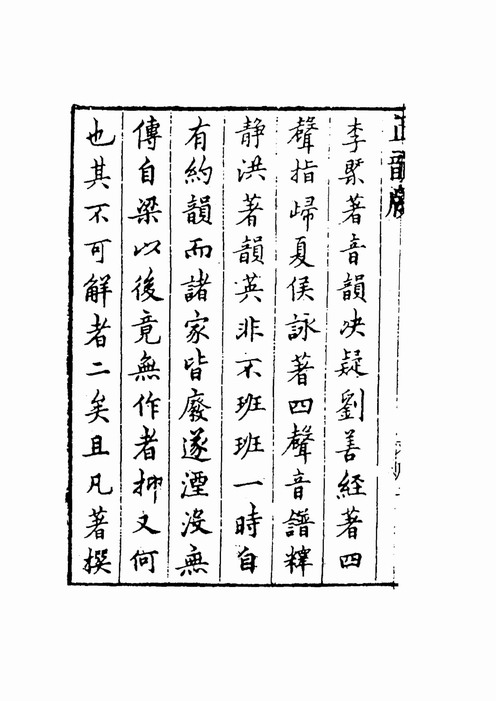 李槩著音韻决疑劉善経著四
聲指歸夏侯詠著四聲音譜釋
静洪著韻英非不班班一時自
有約韻而諸家皆廢遂湮没無
傳自梁以後竟無作者抑又何
也其不可解者二矣且凡著撰